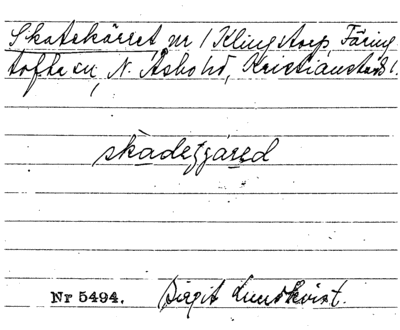 Skatekärret nr 1 Klingstorp, Färing-
tofta sn, N. Åsbo hd, Kristianstads l.
skàdeʒgáred
Nr 5494. Birgit Lundkvist.